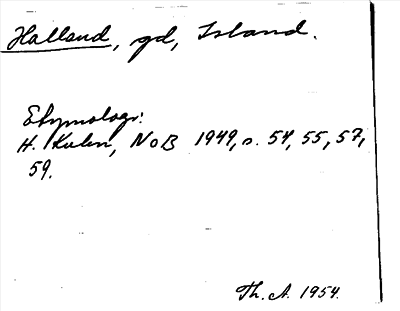 Halland, gd, Island.
Etymologi:
H. Kuhn, NoB 1949, s. 54, 55, 57,
59.
Th. A. 1954.